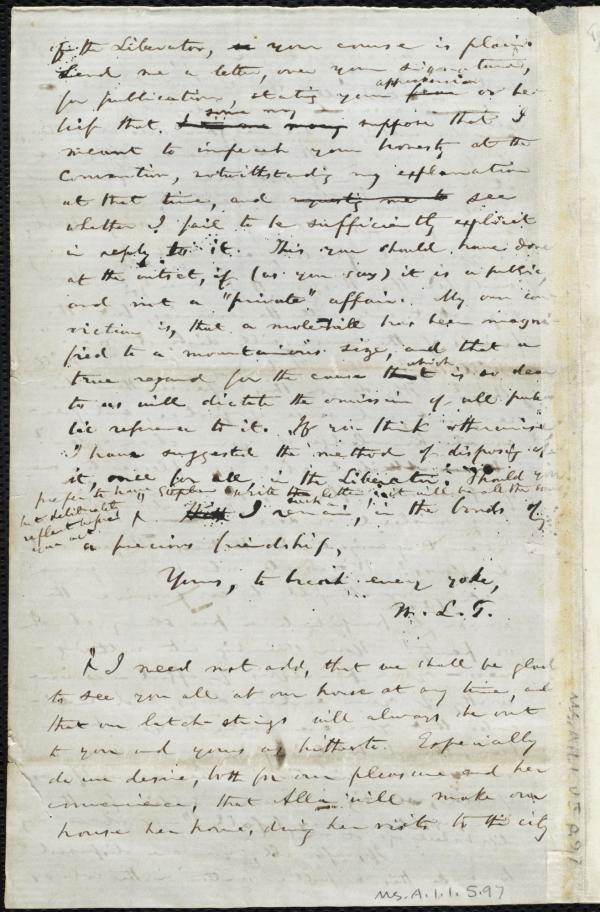 of the Liberator, your course is plain.
Send me a letter, over your signature,
for publication, stating your apprehension or be-
lief that some may suppose that I
meant to impeach your honesty at the
Convention, notwithstanding my explanation
at that time, and see
whether I fail to be sufficiently explicit
in reply to it. This you should have done
at the outset, if (as you say) it is a public,
and not a "private" affair. My own con-
viction is, that a molehill has been magni-
fied to a mountainous size, and that a
true regard for the cause which is so dear
to us will dictate the omission of all pub-
lic reference to it. If you think otherwise
I have suggested the method of disposing of
it, once for all, in the Liberator. Should you
prefer to have Stephen write such letter, it will be all the same
but deliberately
reflect before
you act.
I remain, in the bonds of
a precious friendship,
Yours, to break every yoke,
W. L. G.
I need not add, that we shall be glad
to see you all at our house at any time, and
that our latch-strings will always be out
to you and yours as hitherto. Especially
do we desire, both for our pleasure and her
convenience, that Alla will make our
house her home, during her visits to the city
Ms. A. 1. 1. 5. 97
MS. A. 1. 1. V. 5 P. 97